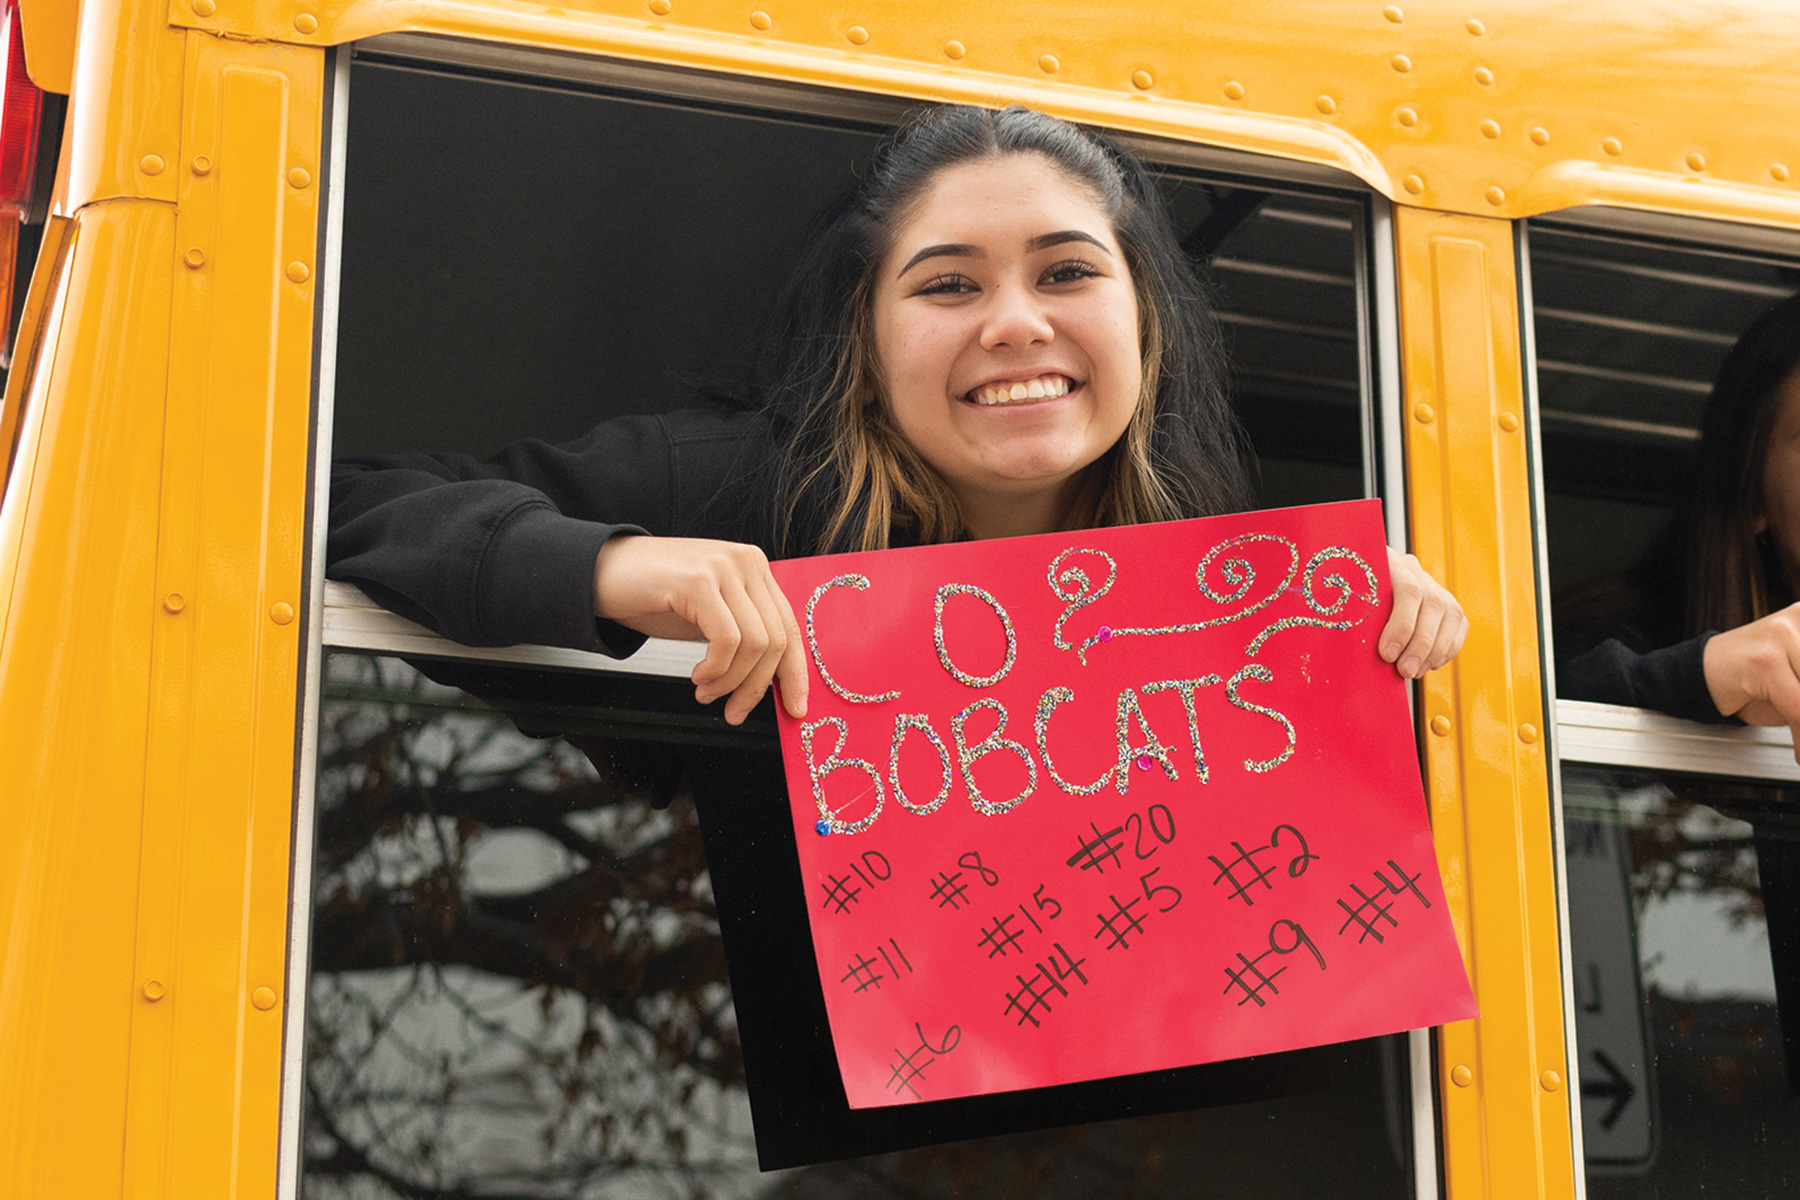 CO
BOBCATS
#10 #8 #20 #2
#15 #5 #4
#11 #14 #9
#6